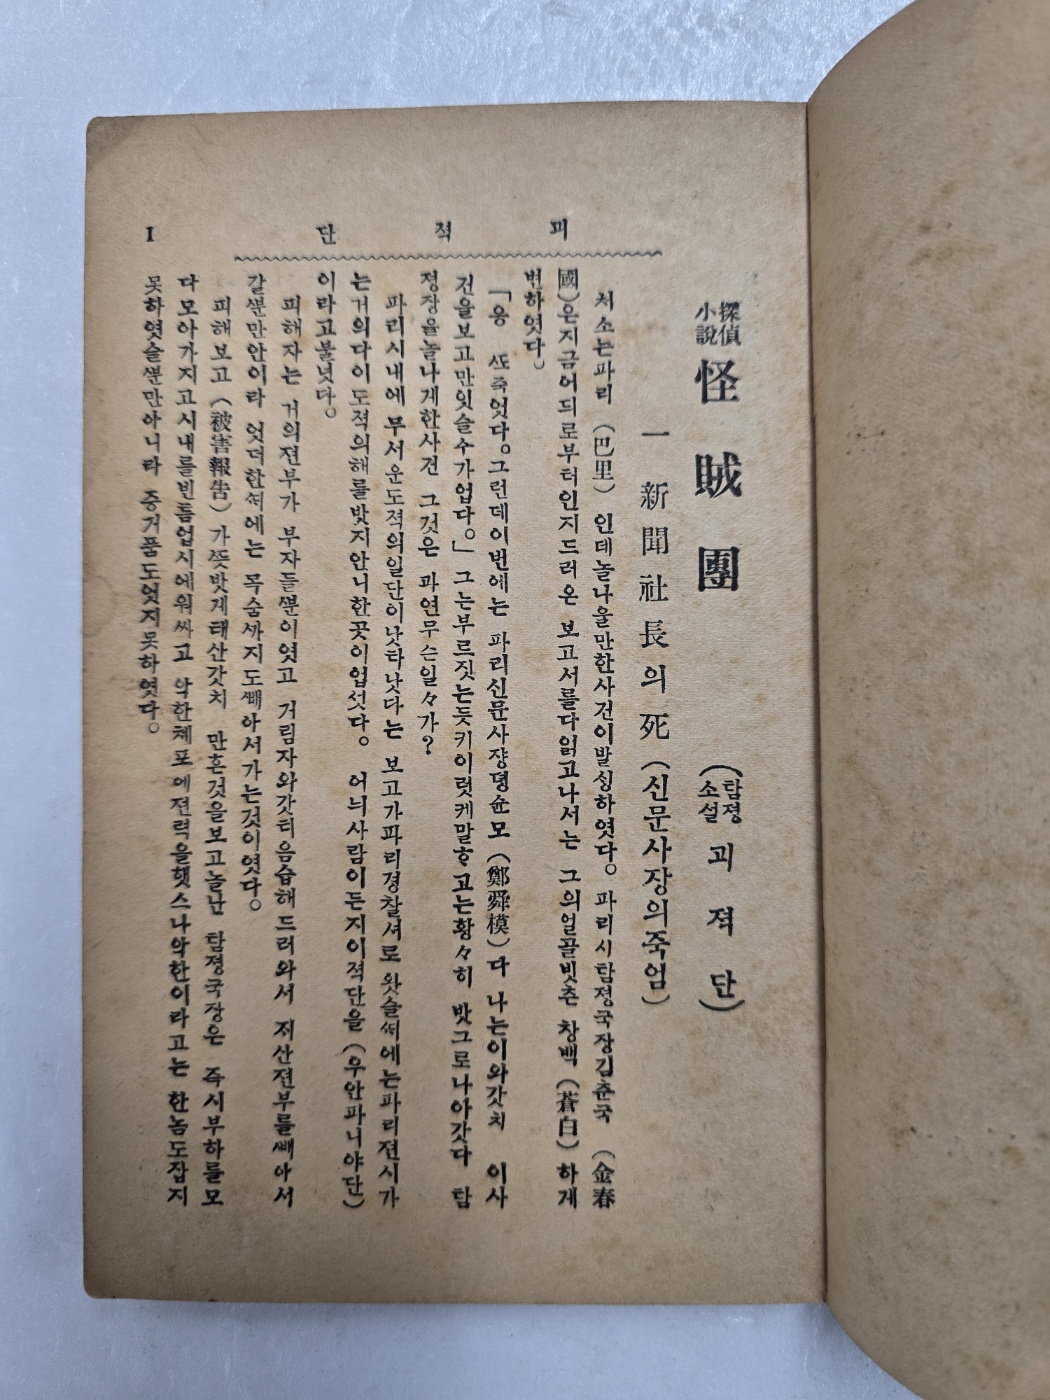 괴적단
1
探偵
小說
怪賊團
(탐졍
소셜 괴적단)
一 新聞社長의死 (신문사장의죽엄)
처소는파리 (巴里) 인데놀나울만한사건이발싱하엿다。 파리시탐졍국장김춘국 (金春
國)은지금어듸로부터인지드러온 보고서를다읽고나서는 그의얼골빗츤 창백 (蒼白) 하게
변하엿다。
「응 ᄯᅩ죽엇다。그런데이번에는 파리신문사쟝뎡순모 (鄭舜模) 다 나는이와갓치 이사
건을보고만잇슬수가업다。」 그는부르짓는듯키이럿케말ᄒᆞ고는황々히 밧그로나아갓다 탐
졍장을놀나게한사건 그것은 과연무슨일々가?
파리시내에 무서운도적의일단이낫타낫다는 보고가파리경찰셔로 왓슬ᄯᅢ에는파리젼시가
는거의다이도적의해를밧지안니한곳이업섯다。 어늬사람이든지이적단을 (우안파니야단)
이라고불넛다。
피해자는 거의젼부가 부자들ᄲᅮᆫ이엿고 거림자와갓티음습해드러와서 저산젼부를ᄲᅢ아서
갈ᄲᅮᆫ만안이라 엇더한ᄯᅢ에는 목숨ᄭᅡ지도ᄲᅢ아서가는것이엿다。
피해보고 (被害報告) 가ᄯᅳᆺ밧게태산갓치 만흔것을보고놀난 탐졍국장은 즉시부하를모
다모아가지고시내를빈틈업시에워싸고 악한톄포에젼력을햇스나악한이라고는 한놈도잡지
못하엿슬ᄲᅮᆫ만아니라 증거품도엇지못하엿다。